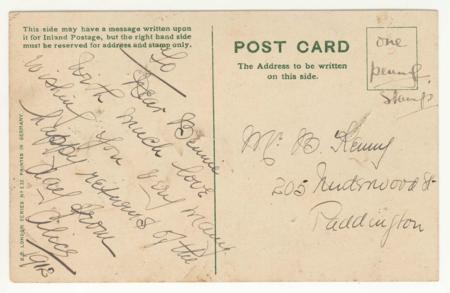 This side may have a message written upon
it for Inland Postage, but the right hand side
must be reserved for address and stamp only.
To
Dear Bennie
With much love
Wishing you very many
Happy returns of the
Day from
Alice
1912
PRINTED IN GERMANY.
POST CARD
The Address to be written
on this side.
one
penny
stamp
Mr B. Kenny
205 Underwood St
Paddington